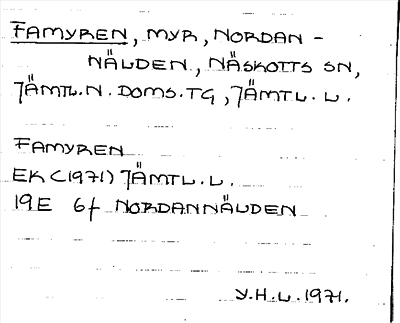 FAMYREN, MYR, NORDAN-
NÄLDEN, NÄSKOTTS SN,
JÄMTL.N.DOMS.TG, JÄMTL.L.
FAMYREN
EK (1971) JÄMTL.L.
19E 6f NORDANNÄLDEN
Y.H.L.1971.